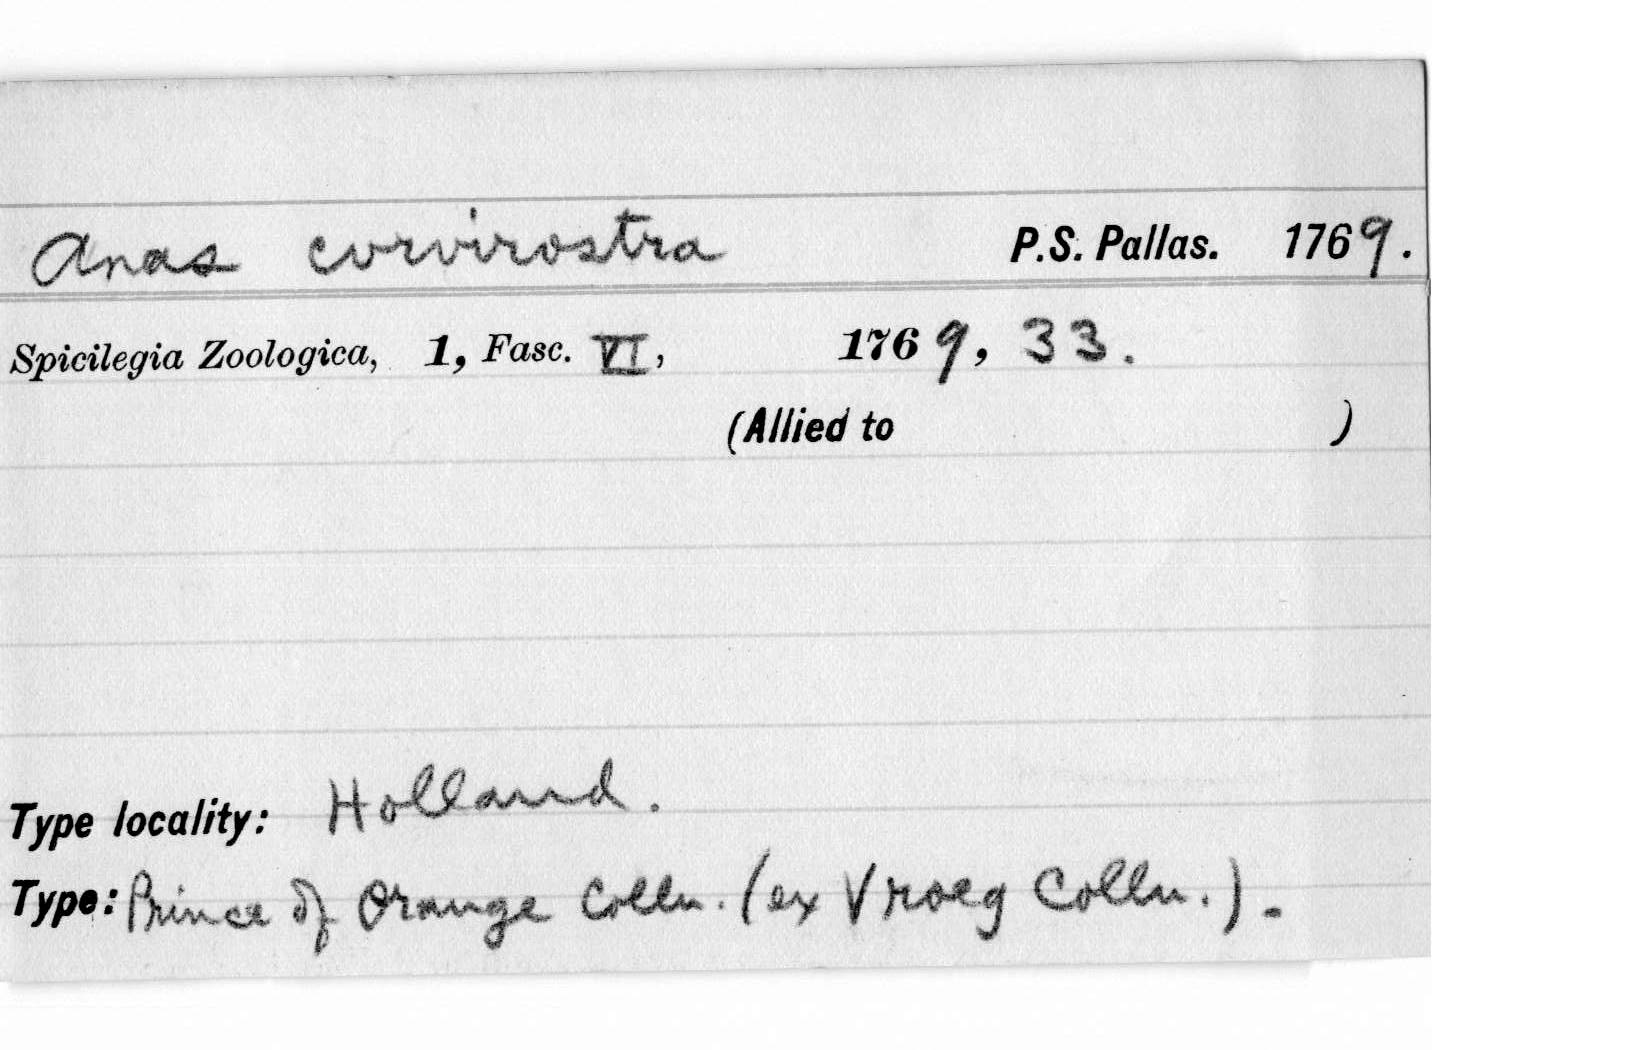 Anas curvirostra P.S. Pallas. 1769.
Spicilegia Zoologica, 1, Fasc. VI, 1769, 33.
(Allied to )
Type locality: Holland.
Type: Prince of Orange Colln. (ex Vroeg Colln.).